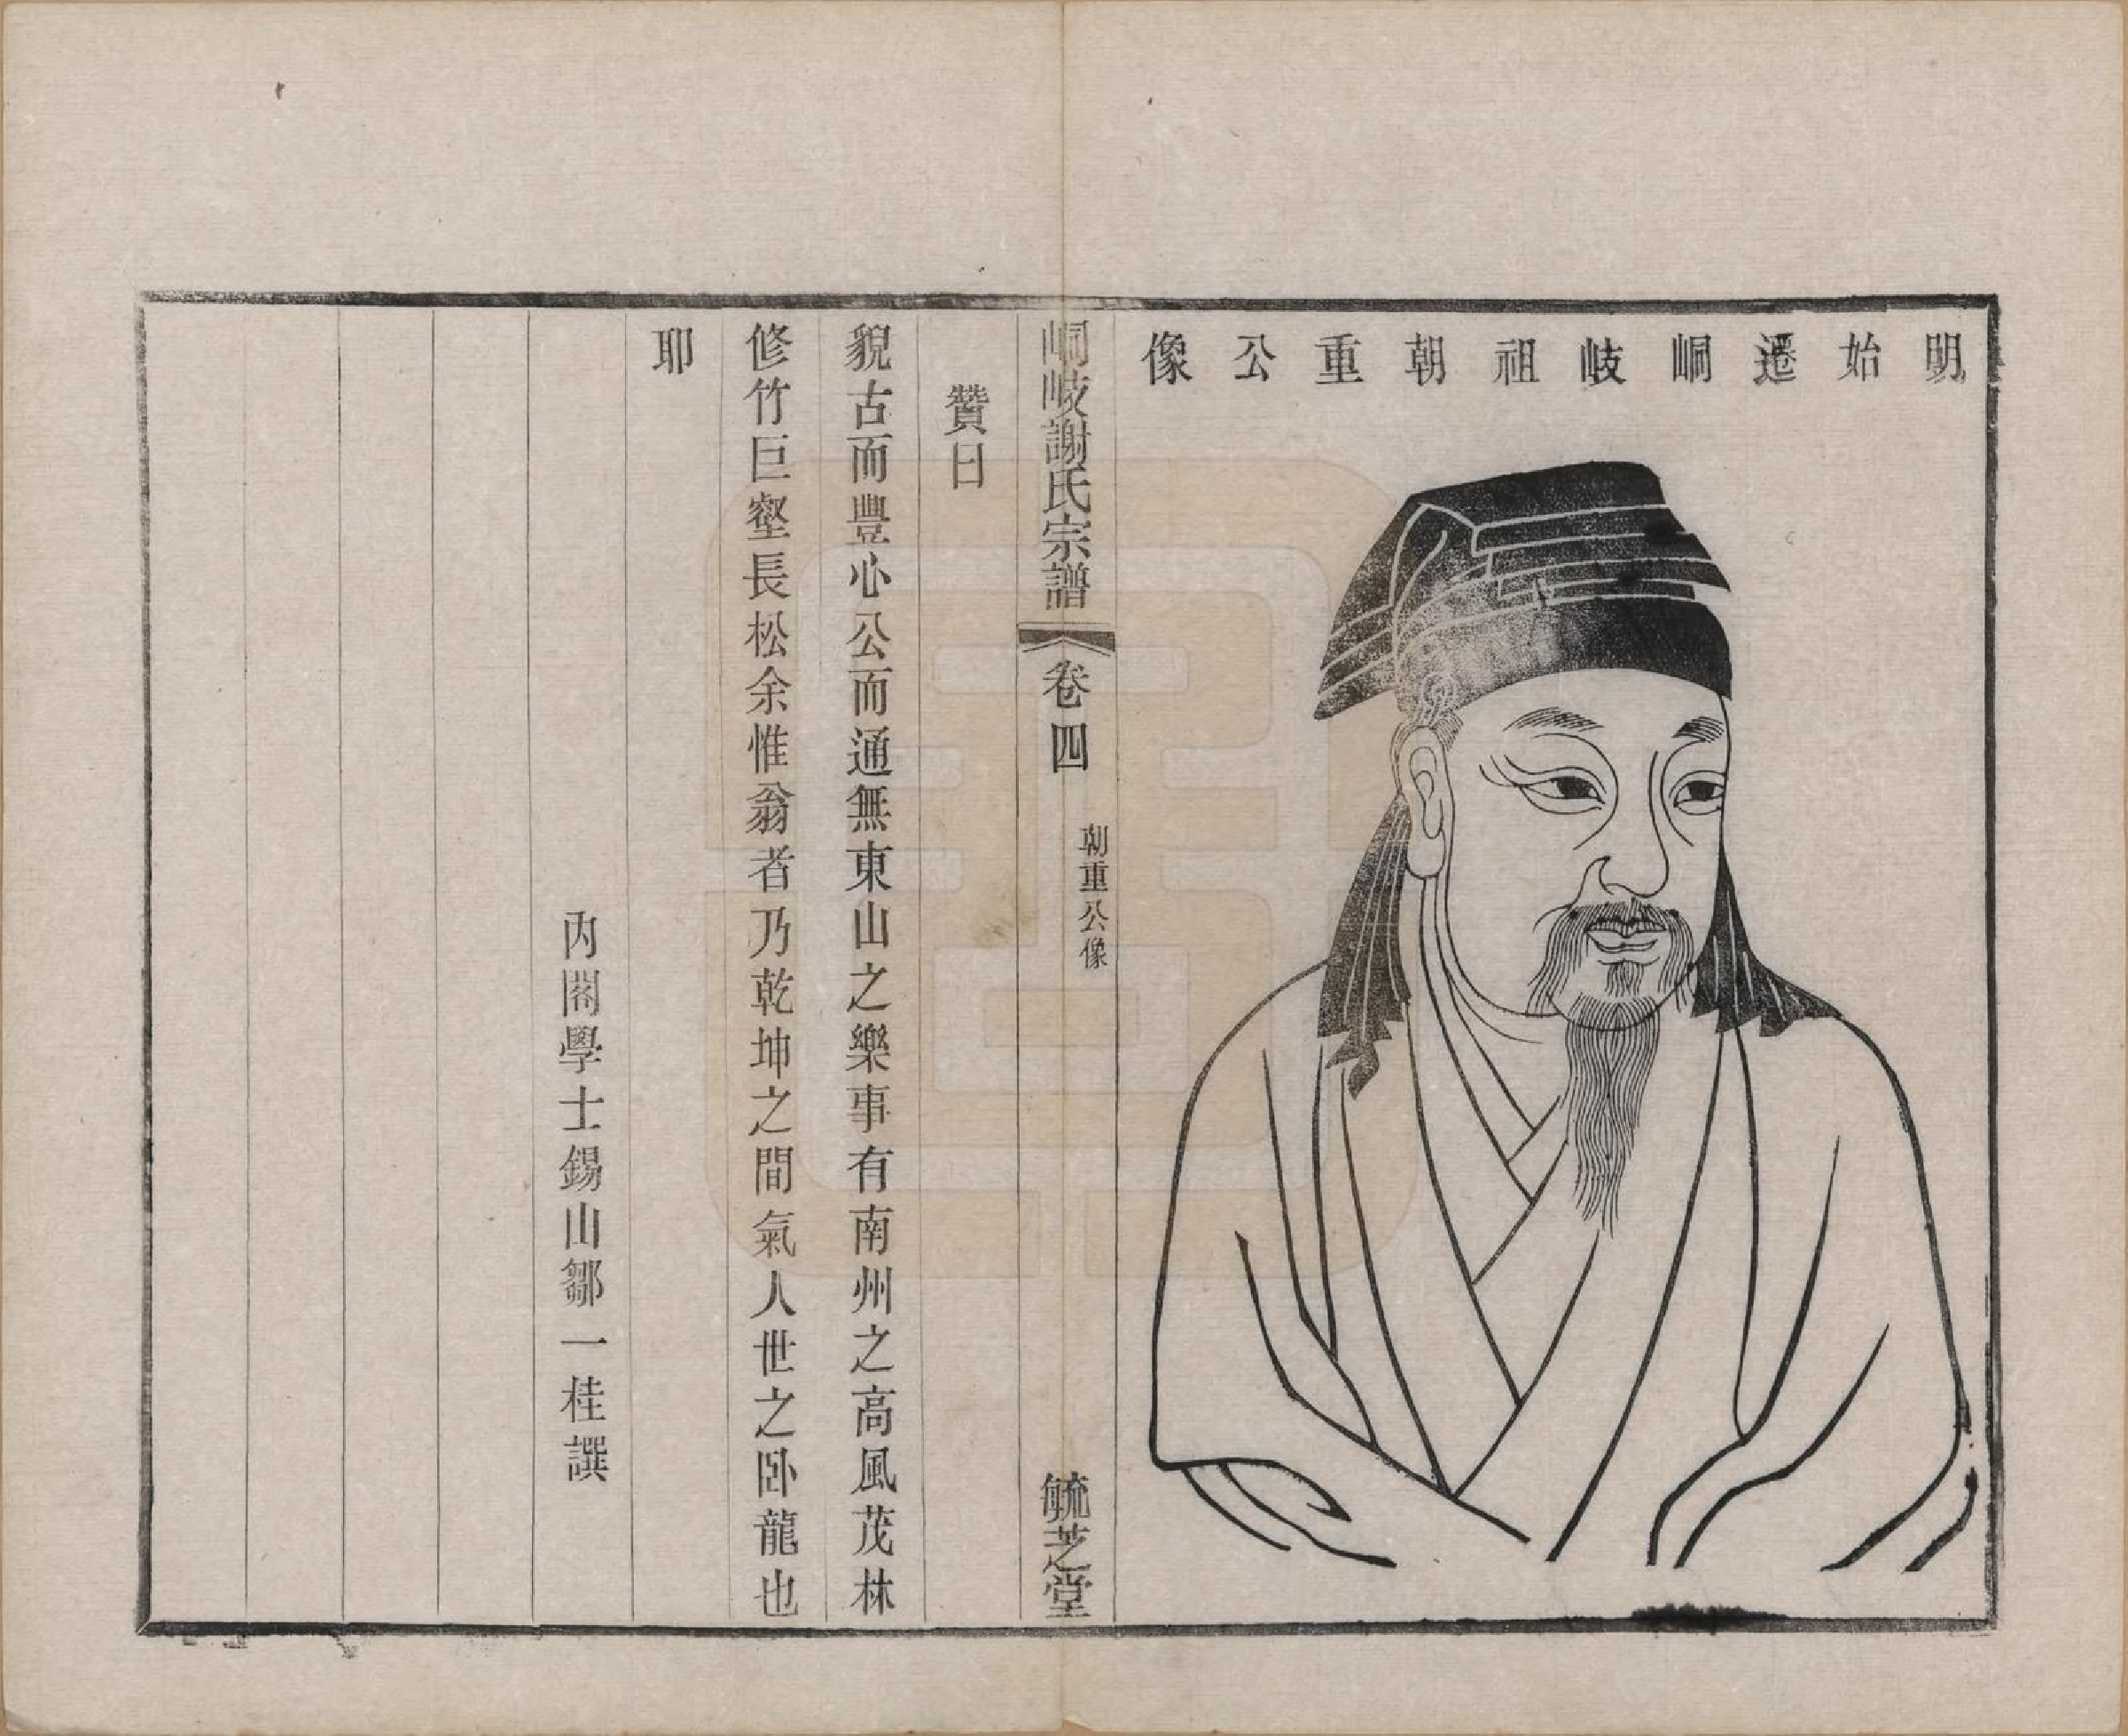 明始遷峒岐祖朝重公像
峒岐謝氏宗譜
卷四
朝重公像
毓芝堂
贊曰
貌古而豐心公而通無東山之樂事有南州之高風茂林
修竹巨壑長松余惟翁者乃乾坤之間氣人世之卧龍也
耶
內閣學士錫山鄒一桂譔